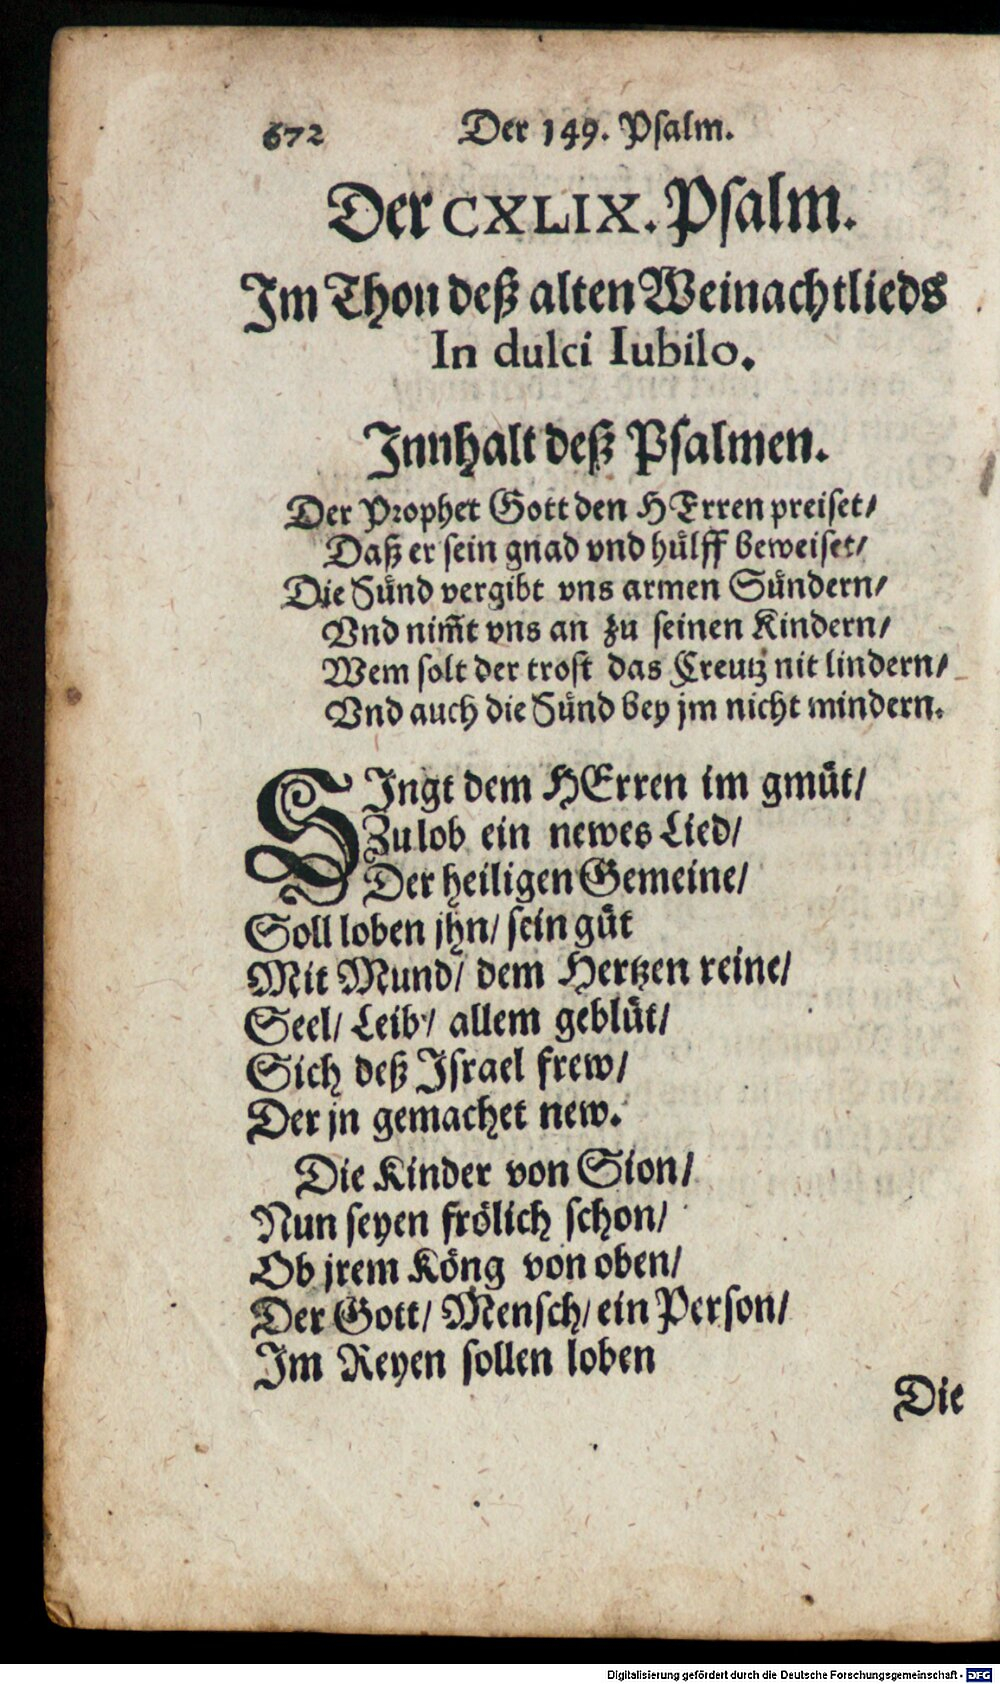 672 Der 149. Psalm.
Der CXLIX. Psalm.
Im Thon deß alten Weinachtlieds
In dulci Iubilo.
Innhalt deß Psalmen.
Der Prophet Gott den HErren preiset/
Daß er sein gnad vnd hülff beweiset/
Die Sünd vergibt vns armen Sündern/
Vnd nim̃t vns an zu seinen Kindern/
Wem solt der trost das Creutz nit lindern/
Vnd auch die Sünd bey jm nicht mindern.
SIngt dem HErren im gmüt/
Zu lob ein newes Lied/
Der heiligen Gemeine/
Soll loben jhn/ sein güt
Mit Mund/ dem Hertzen reine/
Seel/ Leib/ allem geblüt/
Sich deß Israel frew/
Der jn gemachet new.
Die Kinder von Sion/
Nun seyen frölich schon/
Ob jrem Köng von oben/
Der Gott/ Mensch/ ein Person/
Im Reyen sollen loben
Die
Digitalisierung gefördert durch die Deutsche Forschungsgemeinschaft - DFG